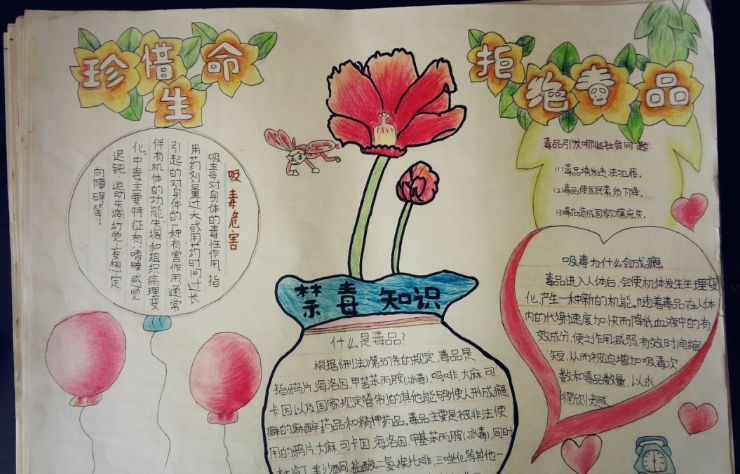 珍惜生命
拒绝毒品
吸毒危害
吸毒对身体的毒性作用,指
用药剂量过大或用药时间过长
引起的对身体的一种有害作用,通常
伴有机体的功能失调和组织病理变
化。中毒主要特征有:嗜睡、感觉
迟钝、运动失调、幻觉、妄想、定
向障碍等。
毒品引发哪些社会问题
(1)毒品诱发违法犯罪.
(2)毒品使国民素质下降.
(3)毒品造成国家财富流失.
吸毒为什么会成瘾
毒品进入人体后,会使机体发生生理变
化,产生一种新的机能,随着毒品在人体
内的代谢速度加快而降低血液中的有
效成分,使之作用减弱,有效时间缩
短,从而被迫增加吸毒次
数和毒品数量,以求
得欣快感
禁毒知识
什么是毒品?
根据《刑法》第357条的规定,毒品是
指鸦片、海洛因、甲基苯丙胺(冰毒)、吗啡、大麻、可
卡因以及国家规定管制的其他能够使人形成瘾
癖的麻醉药品和精神药品。毒品主要是被非法使
用的鸦片、大麻、可卡因、海洛因、甲基苯丙胺(冰毒),同时